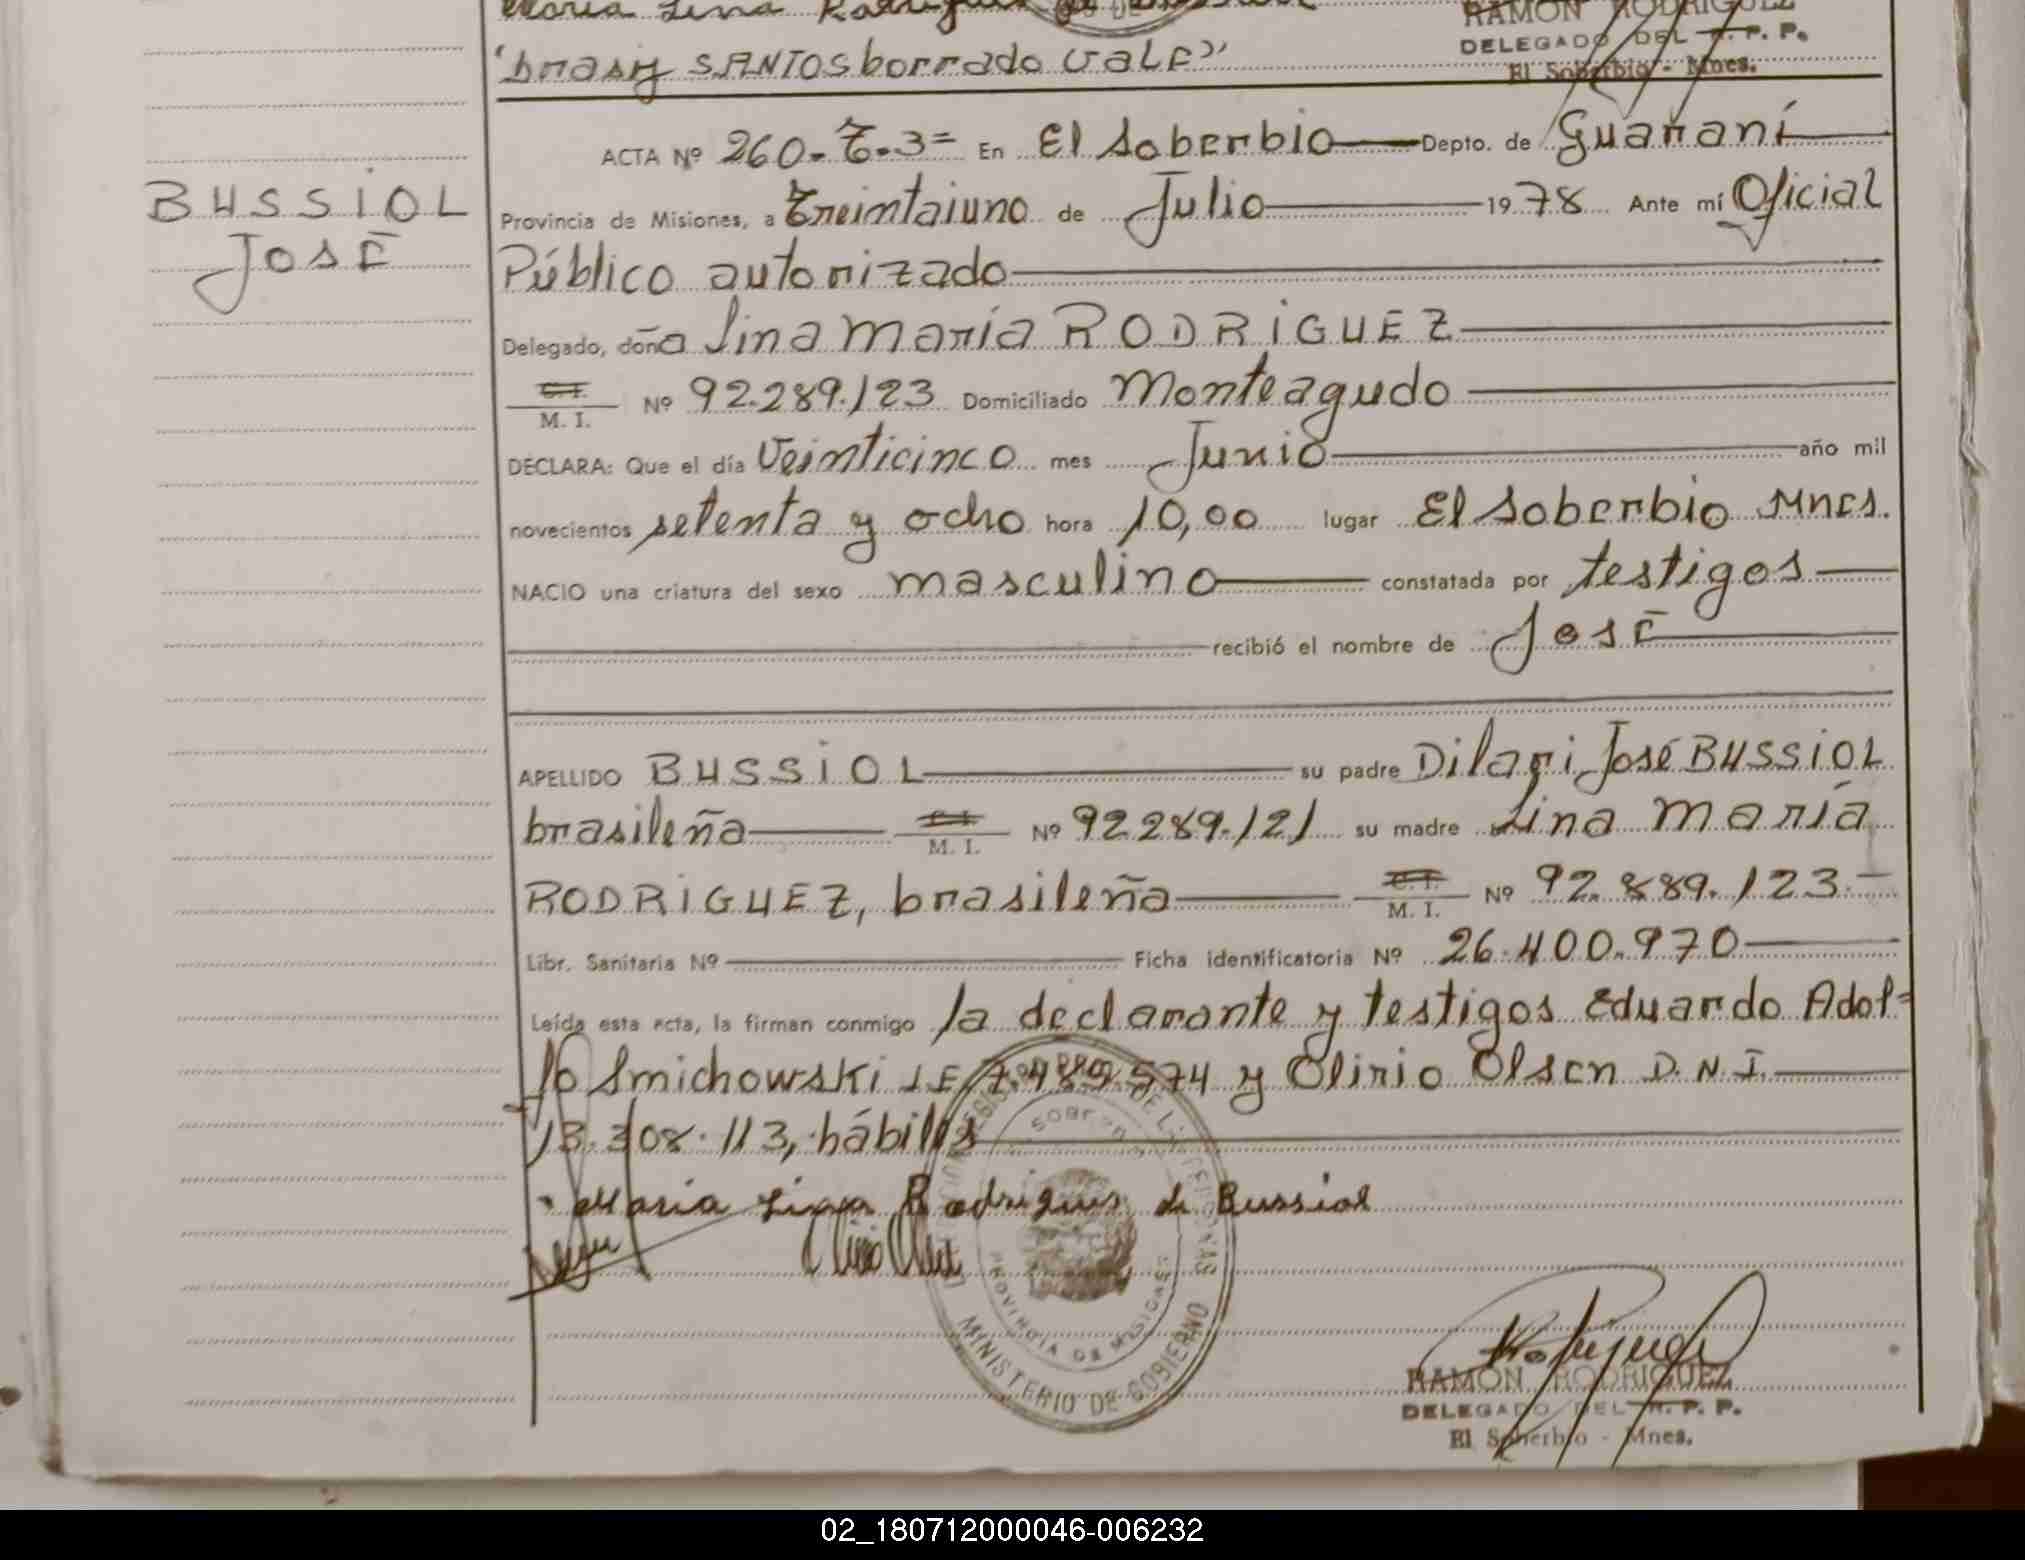 Maria Lina Rodrigues de Bussiol
RAMON RODRIGUEZ
DELEGADO DEL R. P. P.
El Soberbio - Mnes.
SANTOS borrado VALE"
ACTA Nº 260-T.3= En El Soberbio Depto. de Guaraní
BUSSIOL
JOSÉ
Provincia de Misiones, a treintaiuno de Julio 1978 Ante mí Oficial
Público autorizado
Delegado, doña Lina María RODRIGUEZ
C.I.
M. I. Nº 92.289.123 Domiciliado Monteagudo
DECLARA: Que el día Veinticinco mes Junio año mil
novecientos setenta y ocho hora 10,00 lugar El Soberbio Mnes.
NACIO una criatura del sexo masculino constatada por testigos
recibió el nombre de José
APELLIDO BUSSIOL su padre Dilari José BUSSIOL
brasileña C.I. M. I. Nº 92289.121 su madre Lina María
RODRIGUEZ, brasileña C.I. M. I. Nº 92.889.123.-
Libr. Sanitaria Nº Ficha identificatoria Nº 26.400.970
Leída esta acta, la firman conmigo la declarante y testigos Eduardo Adol=
fo Smichowski LE 7.489.574 y Olirio Olsen D.N.I.
13.308.113, hábiles
Maria Lina Rodrigues de Bussiol
PROVINCIA DE MISIONES
MINISTERIO DE GOBIERNO
RAMON RODRIGUEZ
DELEGADO DEL R. P. P.
El Soberbio - Mnes.
02_180712000046-006232